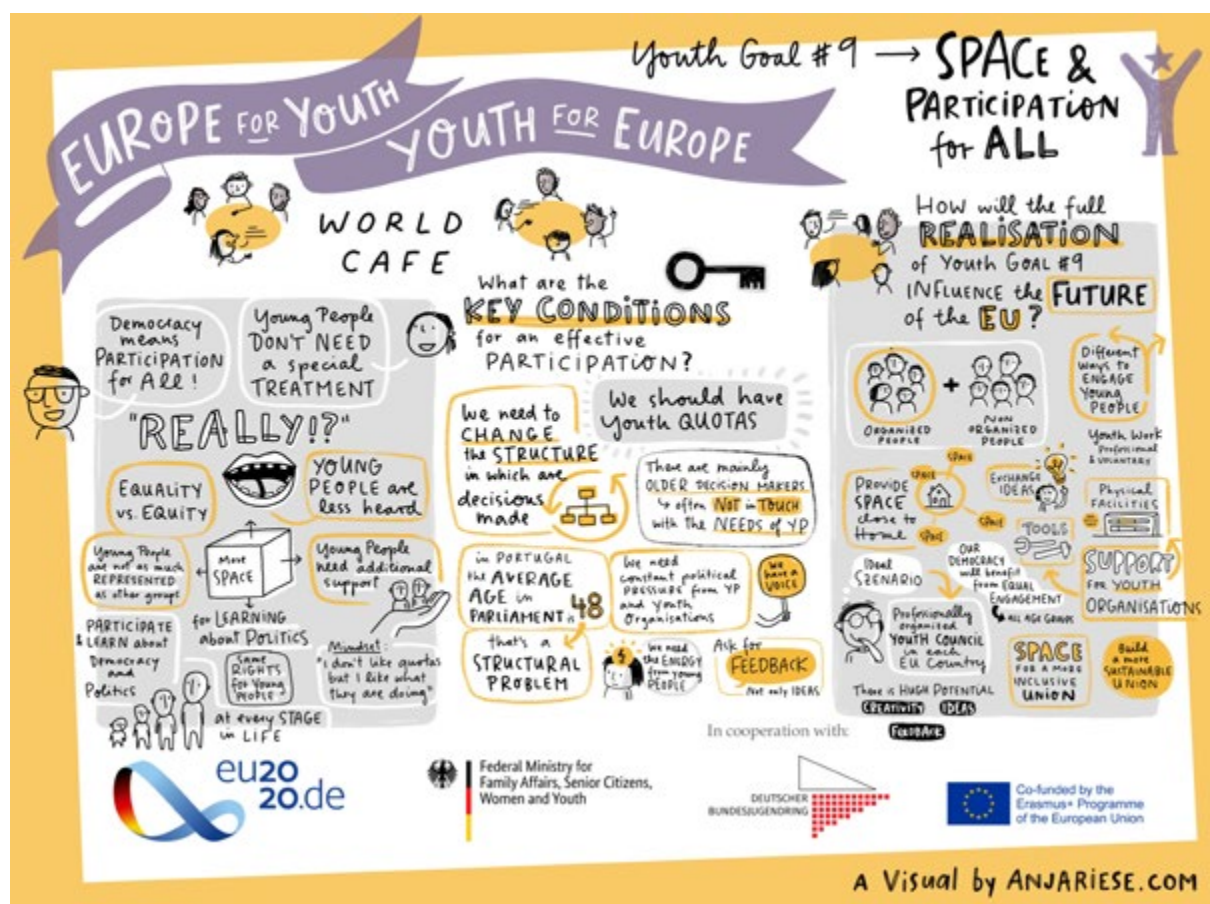 Youth Goal #9 → SPACE &
PARTICIPATION
for ALL
EUROPE FOR YOUTH
YOUTH FOR EUROPE
WORLD
CAFE
Democracy
means
PARTICIPATION
for All!
Young People
DON'T NEED
a special
TREATMENT
"REALLY!?"
EQUALITY
vs. EQUITY
YOUNG
PEOPLE are
less heard
Young People
are not as much
REPRESENTED
as other groups
More
SPACE
Young People
need additional
support
for LEARNING
about Politics
PARTICIPATE
& LEARN about
Democracy
and
Politics
Same
RIGHTS
for Young
PEOPLE
Mindset:
"I don't like quotas
but I like what
they are doing"
at every STAGE
in LIFE
What are the
KEY CONDITIONS
for an effective
PARTICIPATION?
We need to
CHANGE
the STRUCTURE
in which are
decisions
made
We should have
Youth QUOTAS
There are mainly
OLDER DECISION MAKERS
↳ often NOT in TOUCH
with the NEEDS of YP
in PORTUGAL
the AVERAGE
AGE in
PARLIAMENT is 48
that's a
STRUCTURAL
PROBLEM
We need
constant political
PRESSURE from YP
and Youth
Organisations
We
have a
VOICE
We need
the ENERGY
from young
PEOPLE
Ask for
FEEDBACK
Not only IDEAS
How will the full
REALISATION
of Youth GOAL #9
INFLUENCE the FUTURE
of the EU?
ORGANIZED
PEOPLE
+
NON
ORGANIZED
PEOPLE
Different
ways to
ENGAGE
Young
PEOPLE
Youth Work
Professional
& VOLUNTARY
PROVIDE
SPACE
close to
Home
SPACE
SPACE
SPACE
SPACE
EXCHANGE
IDEAS
TOOLS
Physical
FACILITIES
SUPPORT
FOR YOUTH
ORGANISATIONS
Ideal
SZENARIO
OUR
DEMOCRACY
will benefit
from EQUAL
ENGAGEMENT
↳ ALL AGE GROUPS
Professionally
organized
YOUTH COUNCIL
in each
EU Country
SPACE
FOR A MORE
INCLUSIVE
UNION
Build
a more
SUSTAINABLE
UNION
There is HUGH POTENTIAL
CREATIVITY IDEAS
FEEDBACK
In cooperation with:
eu20
20.de
Federal Ministry for
Family Affairs, Senior Citizens,
Women and Youth
DEUTSCHER
BUNDESJUGENDRING
Co-funded by the
Erasmus+ Programme
of the European Union
A Visual by ANJARIESE.COM